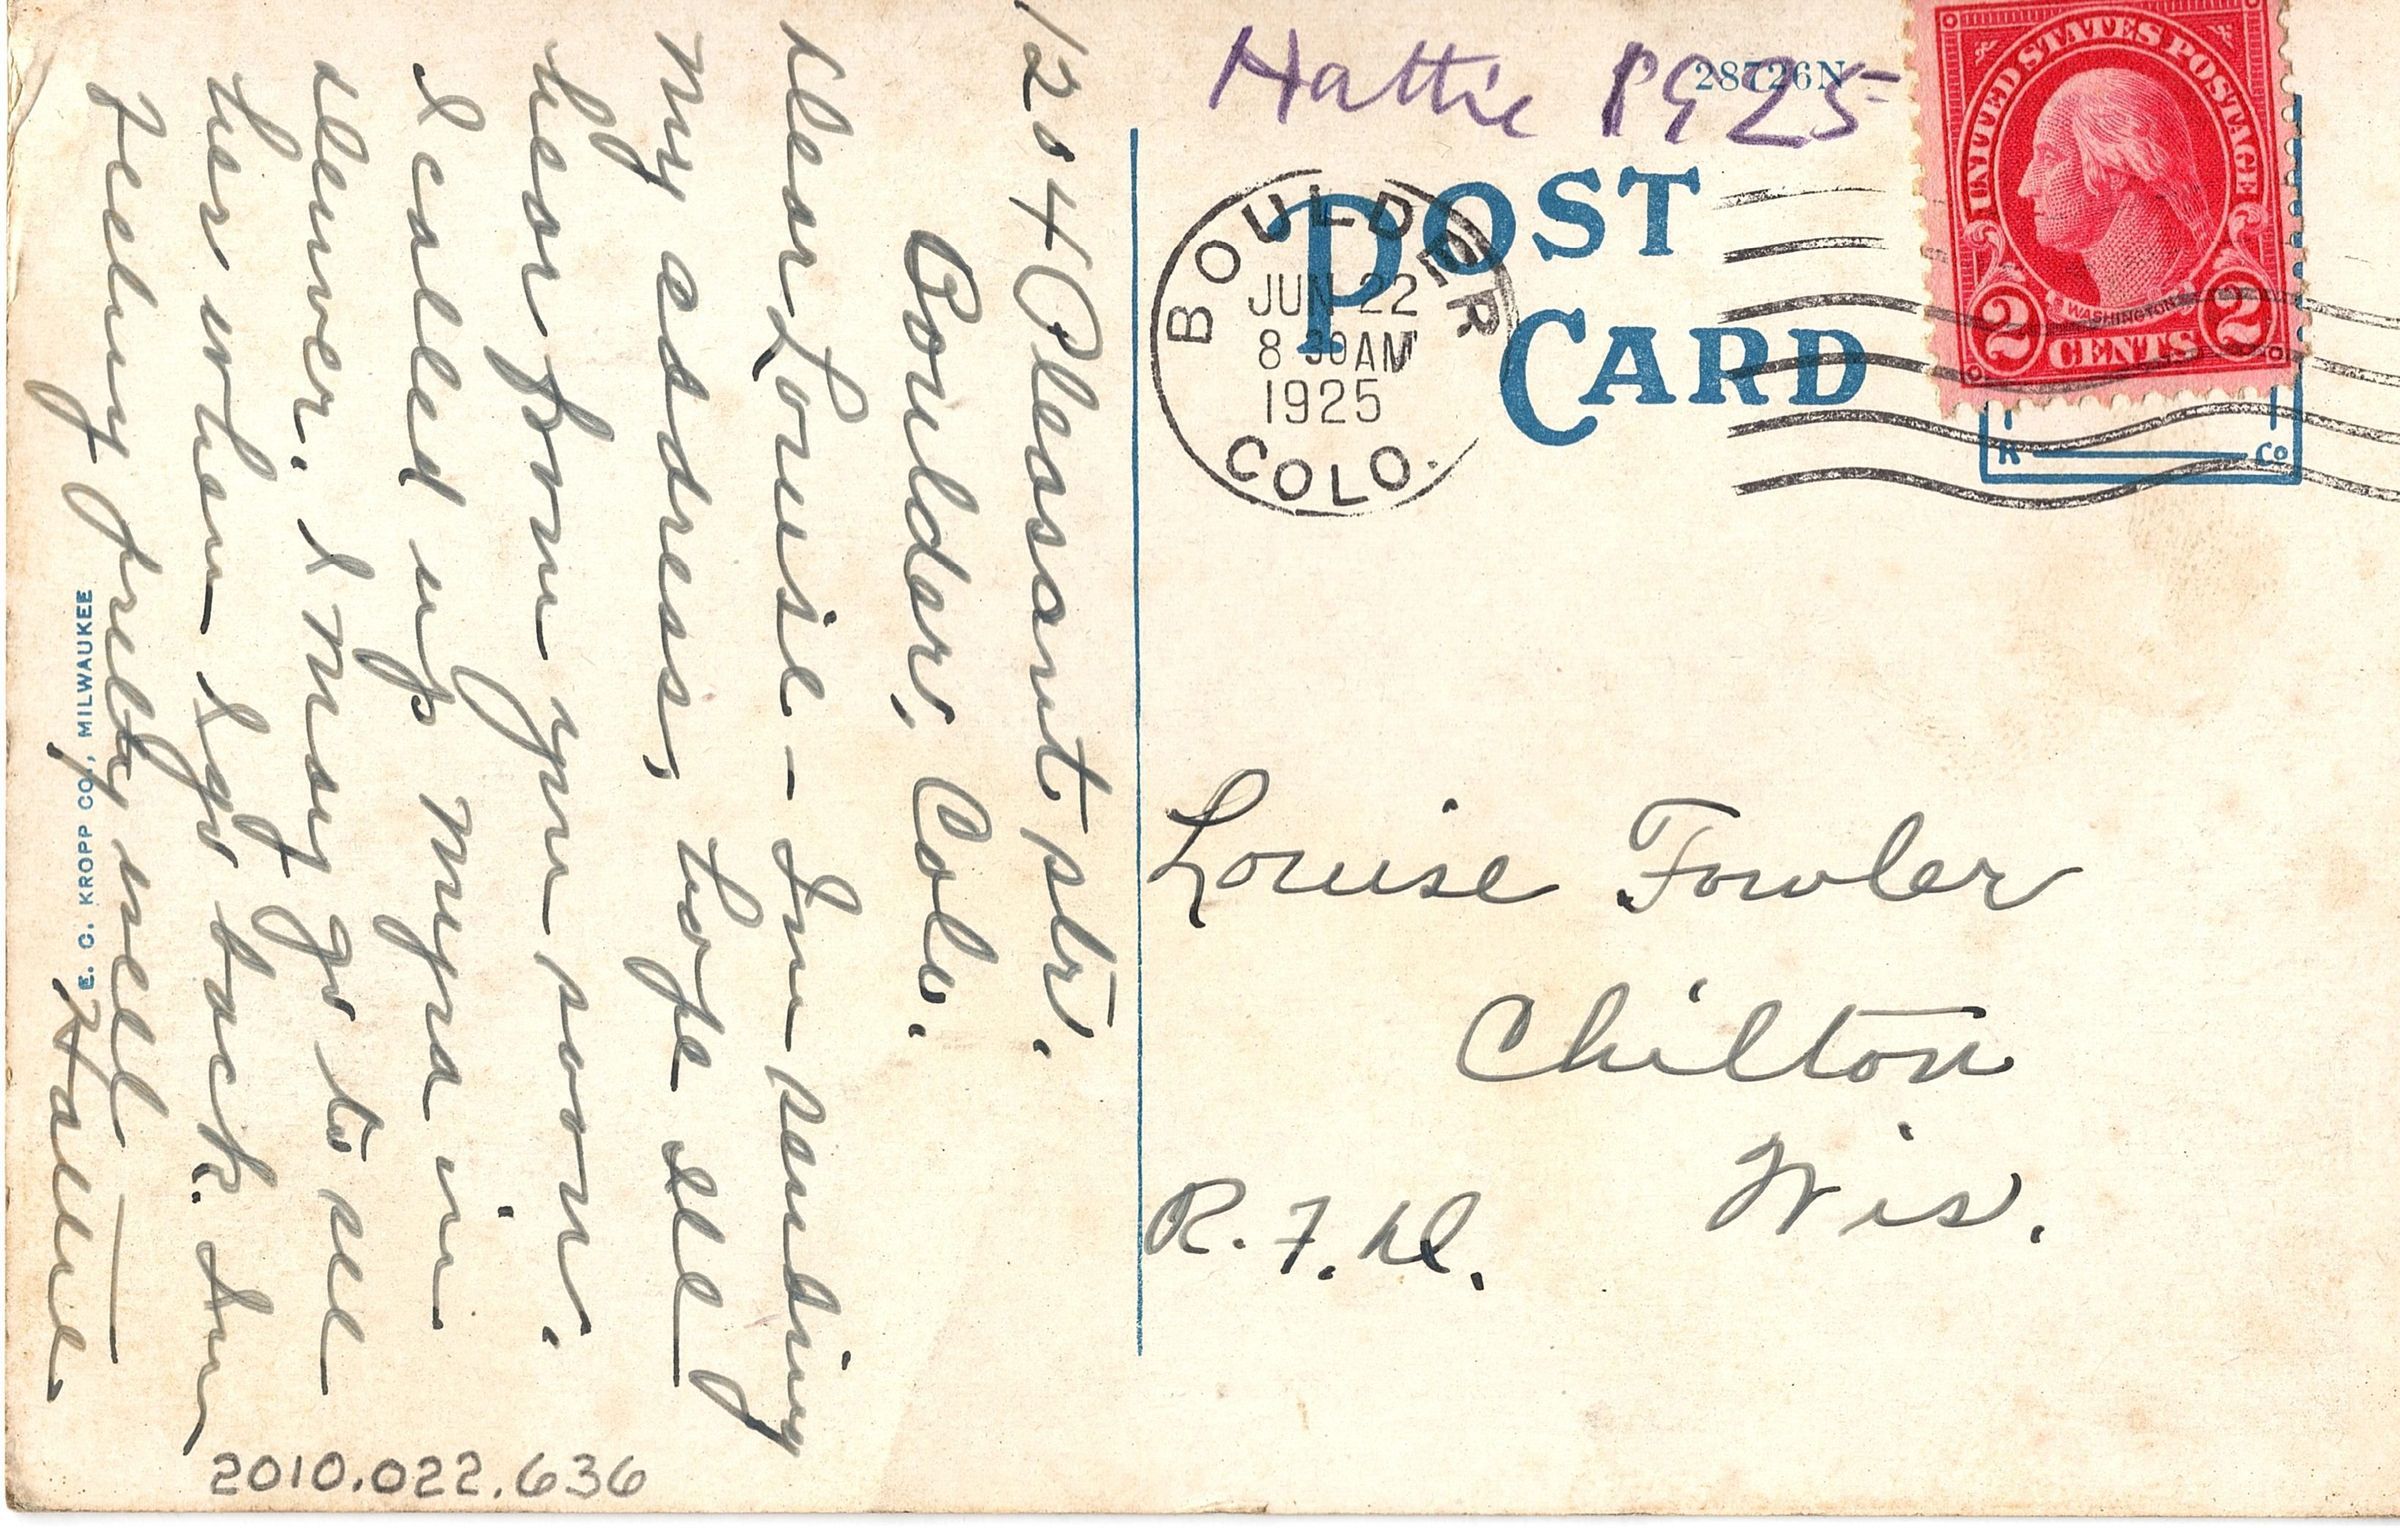 Hattie 1925
28726N
POST
CARD
BOULDER
JUN 22
8 30 AM
1925
COLO.
UNITED STATES POSTAGE
WASHINGTON
2 CENTS 2
K Co
Louise Fowler
Chilton
Wis.
R. F. D.
1204 Pleasant str.
Boulder, Colo.
Dear Louise - Im sending
my address, hope Ill
hear from you soon.
I called up Myra in
Denver. I may go to see
her when I go back. Im
feeling pretty well
Hattie
E. C. KROPP CO., MILWAUKEE
2010.022.636